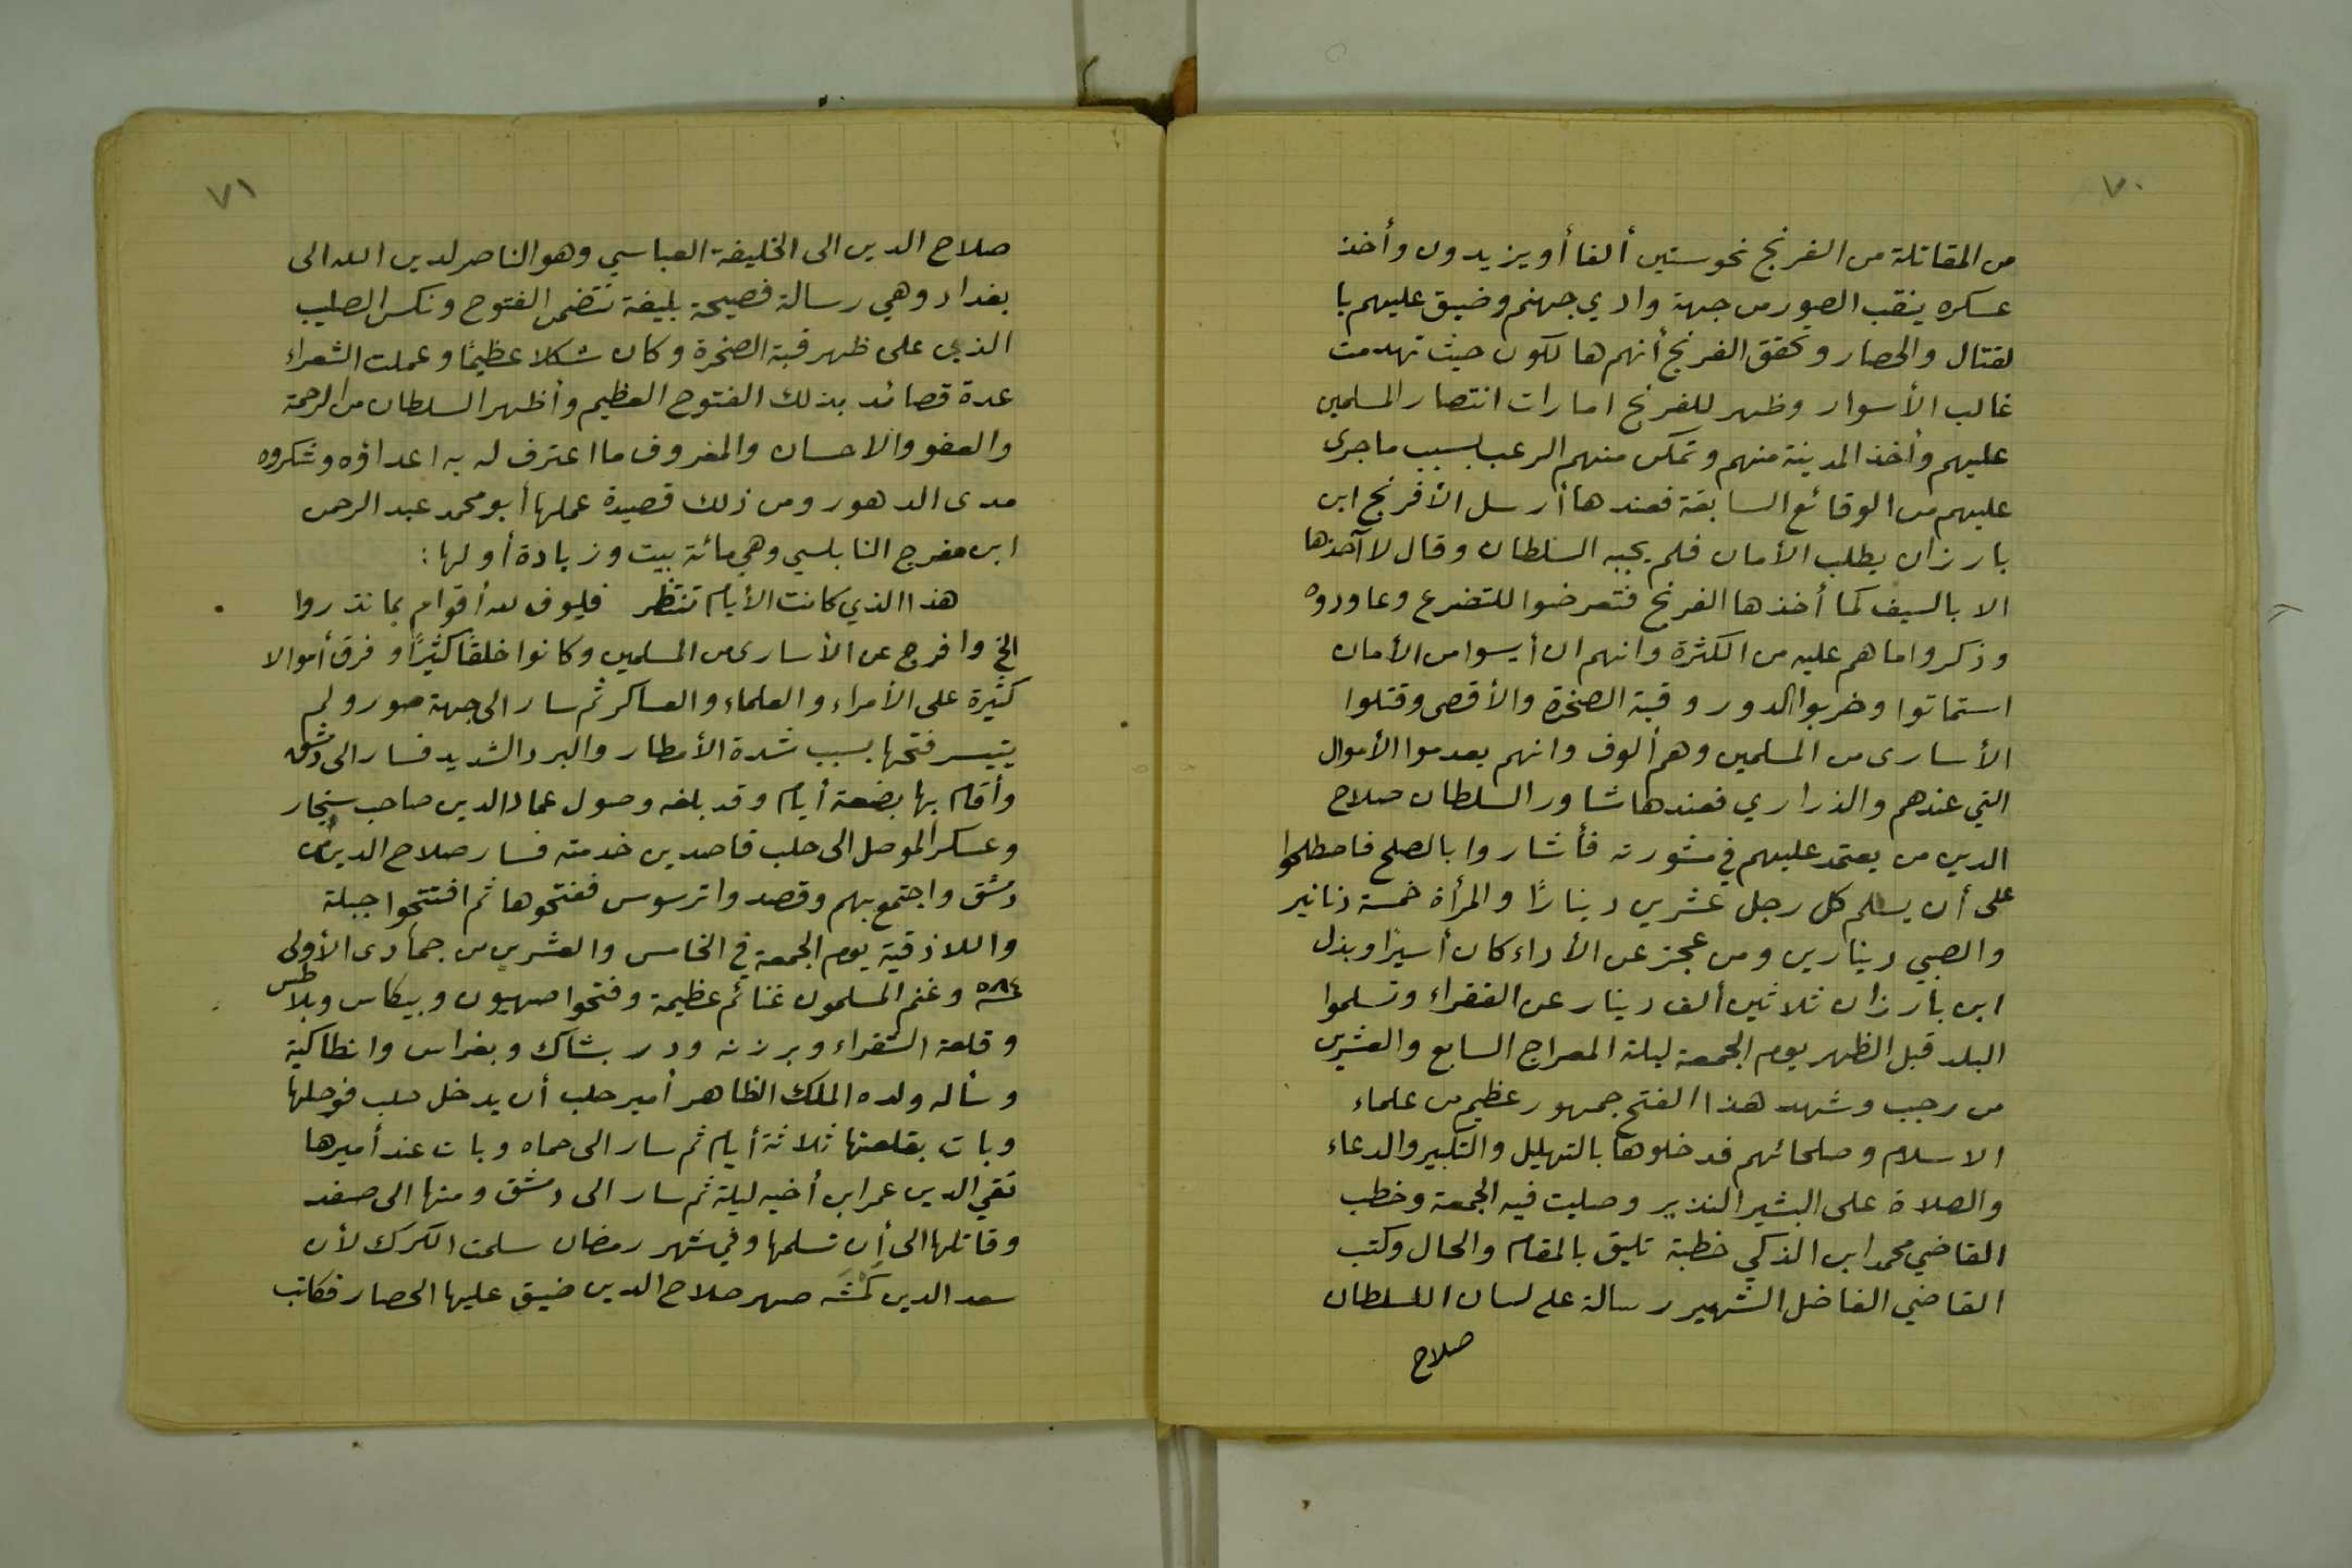 ٧٠
من المقاتلة من الفرنج نحو ستين ألفا أو يزيدون وأخذ
عسكره ينقب الصور من جهة وادي جهنم وضيق عليهم با
لقتال والحصار وتحقق الفرنج أنهم هالكون حيث تهدمت
غالب الأسوار وظهر للفرنج امارات انتصار المسلمين
عليهم وأخذ المدينة منهم وتمكن منهم الرعب بسبب ماجرى
عليهم من الوقائع السابقة فعندها أرسل الأفرنج ابن
بارزان يطلب الأمان فلم يجبه السلطان وقال لا آخذها
الا بالسيف كما أخذها الفرنج فتعرضوا للتضرع وعاودوه
وذكروا ماهم عليه من الكثرة وانهم ان أيسوا من الأمان
استماتوا وخربوا الدور وقبة الصخرة والأقصى وقتلوا
الأسارى من المسلمين وهم ألوف وانهم يعدموا الأموال
التي عندهم والذراري فعندها شاور السلطان صلاح
الدين من يعتمد عليهم في مشورته فأشاروا بالصلح فاصطلحوا
على أن يسلم كل رجل عشرين دينارًا والمرأة خمسة دنانير
والصبي دينارين ومن عجز عن الأداء كان أسيرًا وبذل
ابن بارزان ثلاثين ألف دينار عن الفقراء وتسلموا
البلد قبل الظهر يوم الجمعة ليلة المعراج السابع والعشرين
من رجب وشهد هذا الفتح جمهور عظيم من علماء
الاسلام وصلحائهم فدخلوها بالتهليل والتكبير والدعاء
والصلاة على البشير النذير وصليت فيه الجمعة وخطب
القاضي محمد ابن الذكي خطبة تليق بالمقام والحال وكتب
القاضي الفاضل الشهير رسالة على لسان السلطان
صلاح
٧١
صلاح الدين الى الخليفة العباسي وهو الناصر لدين الله الى
بغداد وهي رسالة فصيحة بليغة تتضمن الفتوح ونكس الصليب
الذي على ظهر قبة الصخرة وكان شكلا عظيمًا وعملت الشعراء
عدة قصائد بذلك الفتوح العظيم وأظهر السلطان من الرحمة
والعفو والاحسان والمعروف ما اعترف له به اعداؤه وشكروه
مدى الدهور ومن ذلك قصيدة عملها أبو محمد عبد الرحمن
ابن مفرج النابلسي وهي مائة بيت وزيادة أولها:
هذا الذي كانت الأيام تنتظر فليوف لله أقوام بما نذروا
الخ وافرج عن الأسارى من المسلمين وكانوا خلقًا كثيرًا وفرق أموالا
كثيرة على الأمراء والعلماء والعساكر ثم سار الى جهة صور ولم
يتيسر فتحها بسبب شدة الأمطار والبرد الشديد فسار الى دمشق
وأقام بها بضعة أيام وقد بلغه وصول عماد الدين صاحب سنجار
وعسكر الموصل الى حلب قاصدين خدمته فسار صلاح الدين من
دمشق واجتمع بهم وقصدوا ترسوس ففتحوها ثم افتتحوا جبلة
واللاذقية يوم الجمعة في الخامس والعشرين من جمادى الأولى
سنة ٥٨٤ وغنم المسلمون غنائم عظيمة وفتحوا صهيون وبيكاس وبلاطس
وقلعة الشغراء وبرزنه ودر بشاك وبغراس وانطاكية
وسأله ولده الملك الظاهر أمير حلب أن يدخل حلب فوصلها
وبات بقلعتها ثلاثة أيام ثم سار الى حماه وبات عند أميرها
تقي الدين عمر ابن أخيه ليلة ثم سار الى دمشق ومنها الى صفد
وقاتلها الى أن تسلمها وفي شهر رمضان سلمت الكرك لأن
سعد الدين كمشه صهر صلاح الدين ضيق عليها الحصار فكاتب